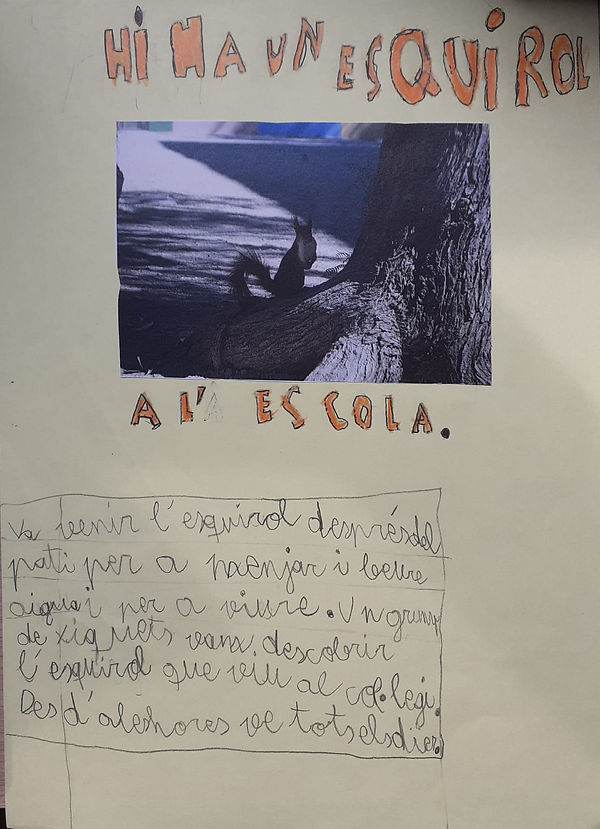 HI HA UN ESQUIROL
A L'A ESCOLA.
Va benir l'esquirol desprésdel
pati per a menjar i beure
aigua i per a viure. Un grup
de xiquets vanx descobrir
l'esquirol que viu al col·legi.
Des d'aleshores ve totselsdies.